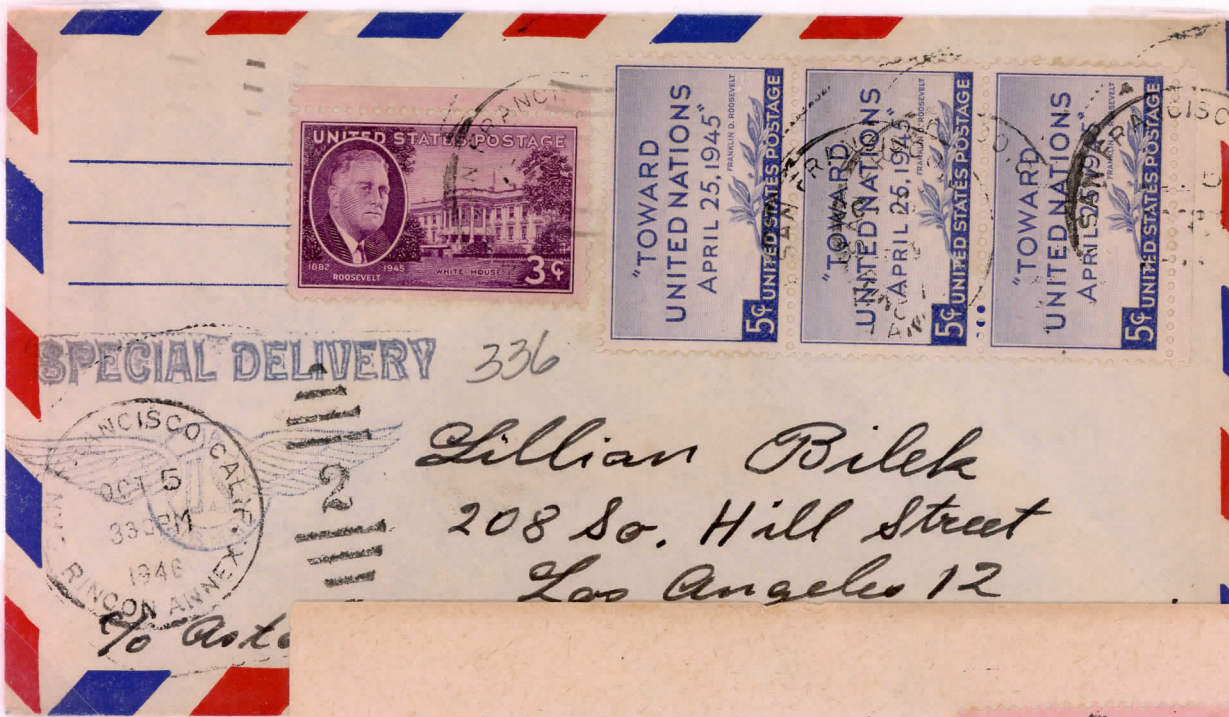 UNITED STATES POSTAGE
1882 1945
ROOSEVELT
WHITE HOUSE
3¢
"TOWARD
UNITED NATIONS
APRIL 25, 1945"
FRANKLIN D. ROOSEVELT
5¢ UNITED STATES POSTAGE
"TOWARD
UNITED NATIONS
APRIL 25, 1945"
FRANKLIN D. ROOSEVELT
5¢ UNITED STATES POSTAGE
"TOWARD
UNITED NATIONS
APRIL 25, 1945"
5¢ UNITED STATES POSTAGE
SPECIAL DELIVERY 336
SAN FRANCISCO CALIF.
OCT 5
330PM
1946
RINCON ANNEX
2
Lillian Bilek
208 So. Hill Street
Los Angeles 12
c/o